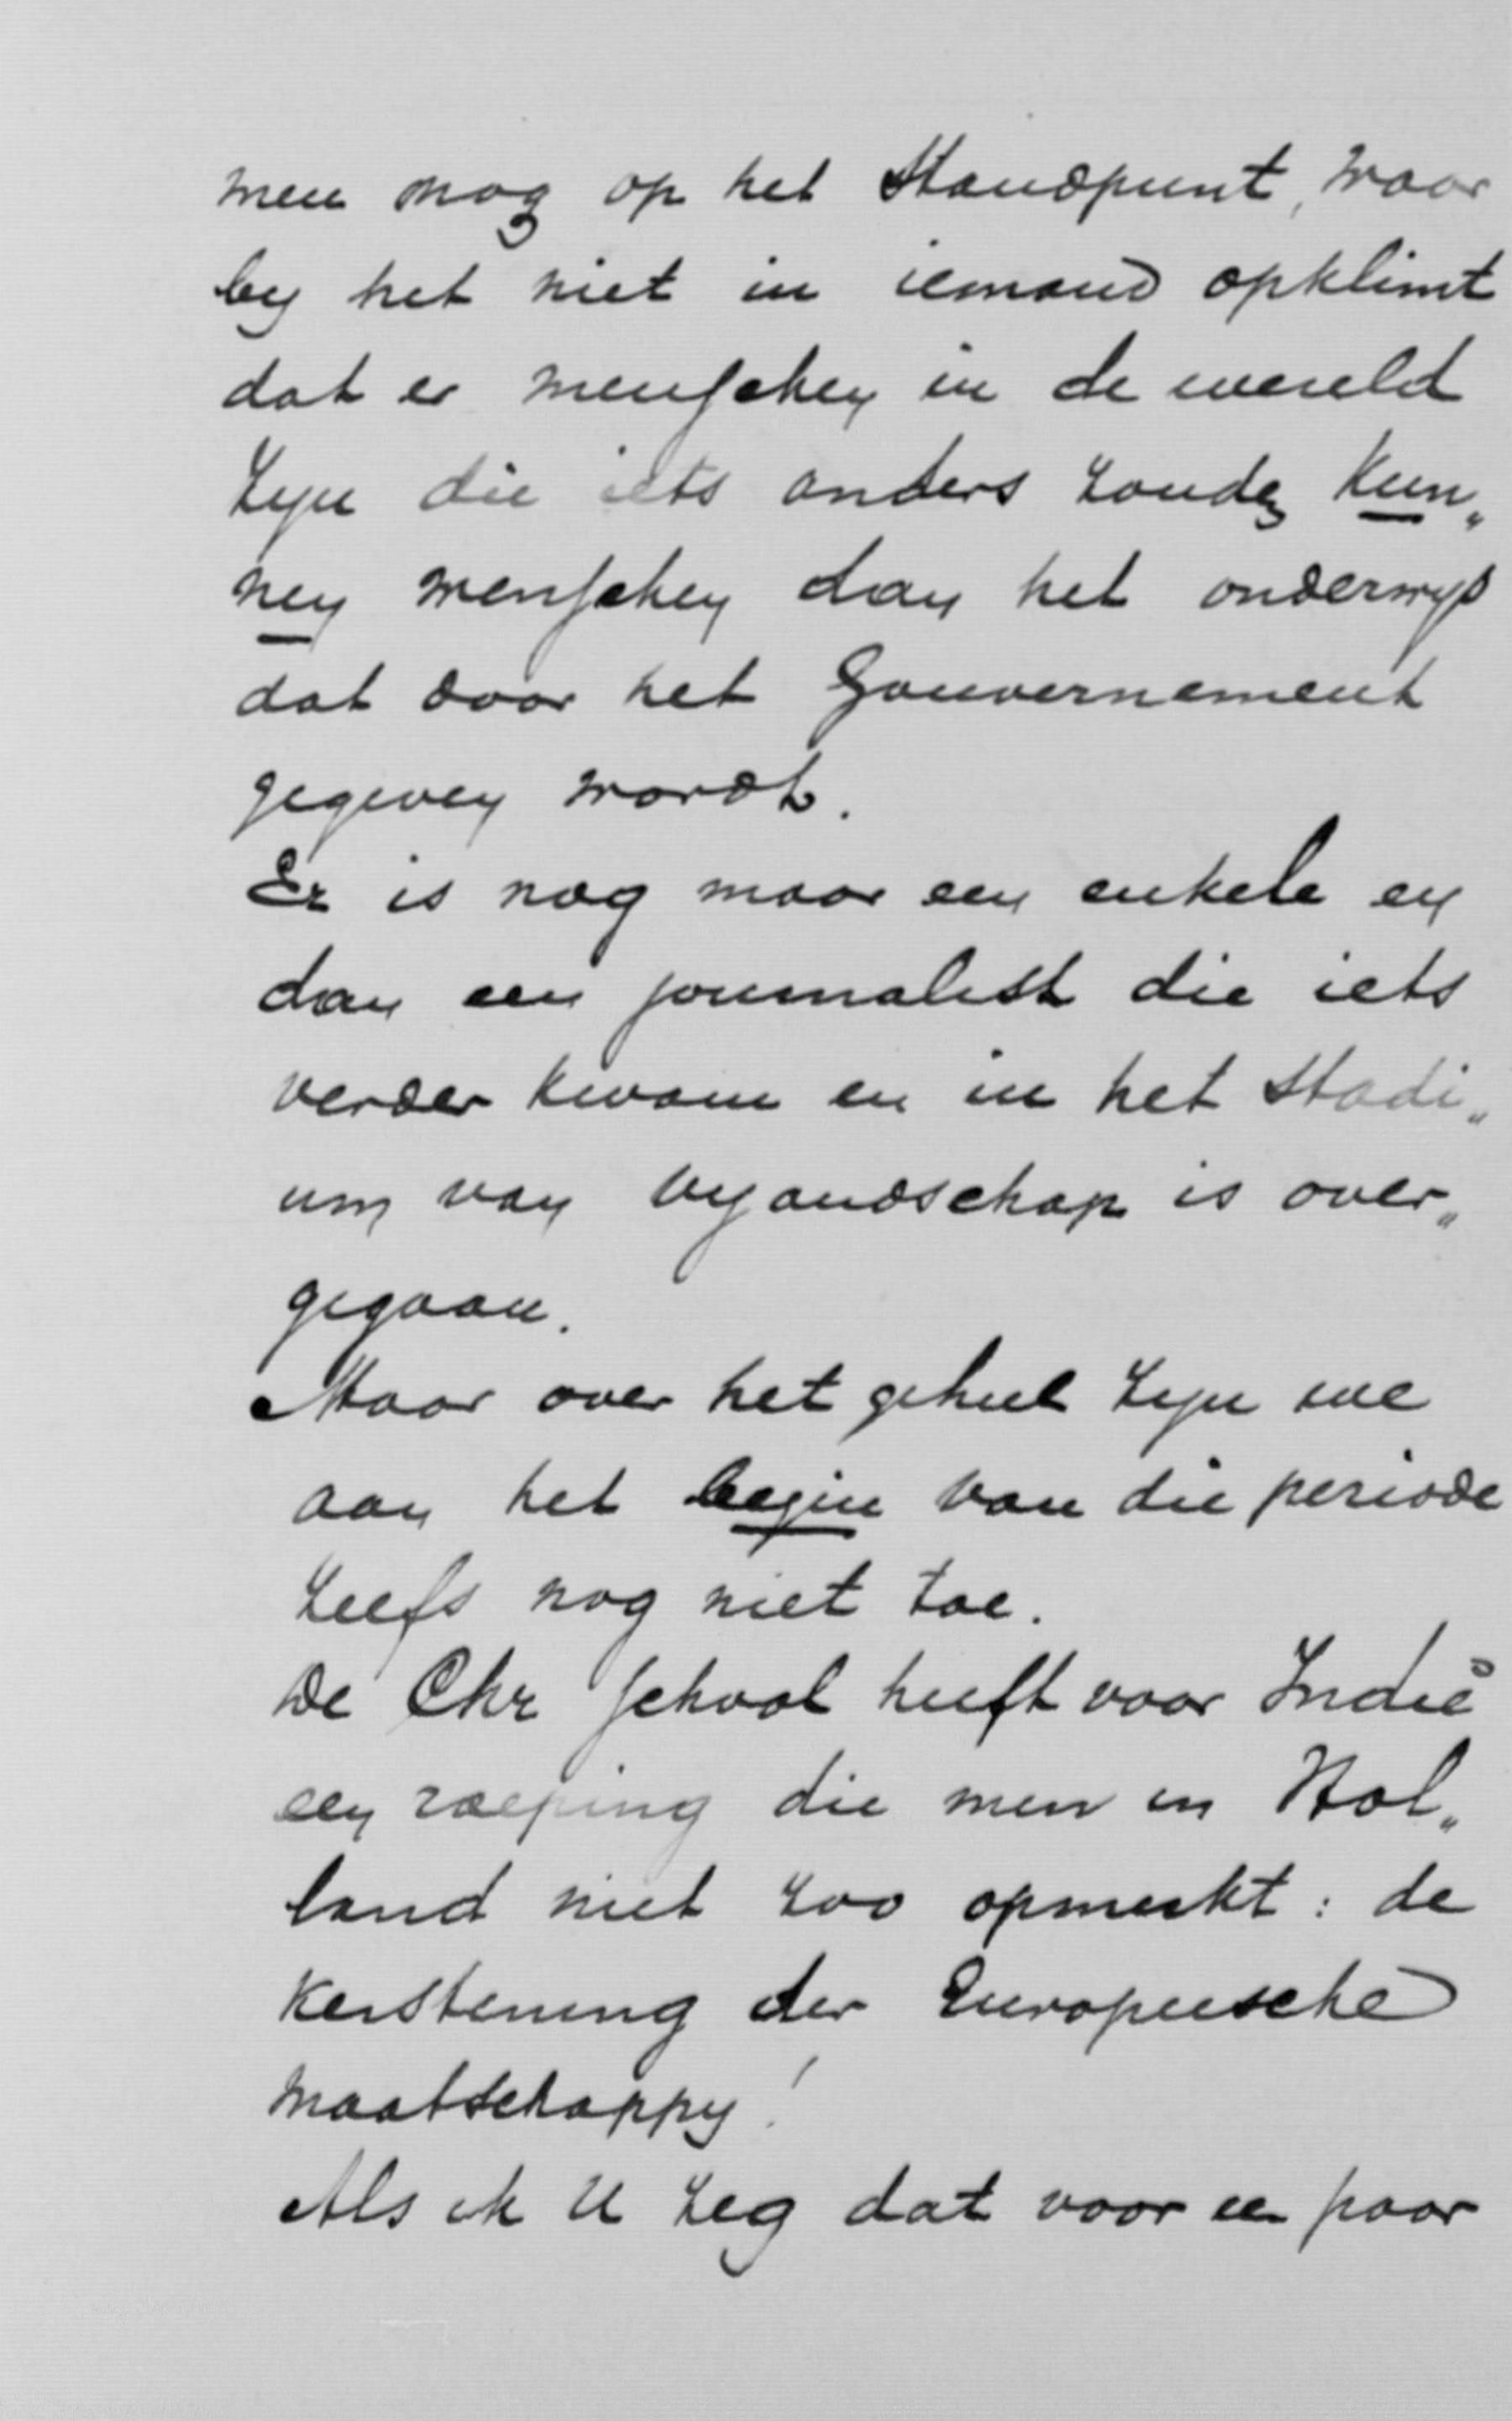 men nog op het Standpunt, waar
by het niet in iemand opklimt
dat er menschen in de wereld
zyn die iets anders zouden kun„
nen menschen dan het onderwys
dat door het Gouvernement
gegeven wordt.
Er is nog maar een enkele en
dan een journalist die iets
verder kwam en in het Stadi„
um van vyandschap is over„
gegaan.
Maar over het geheel zyn we
aan het begin van die periode
zeefs nog niet toe.
De Chr School heeft voor Indië
een roeping die men in Hol„
land niet zoo opmerkt: de
Kerstening der Europeesche
maatschappy!
Als ik U zeg dat voor een paar